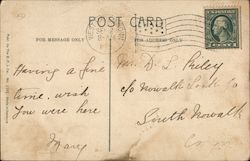 POST CARD
FOR MESSAGE ONLY
FOR ADDRESS ONLY
Having a fine
time. wish
You were here
Mary
Mr. D. L. Riley
c/o Nowalk
South Nowalk
Conn